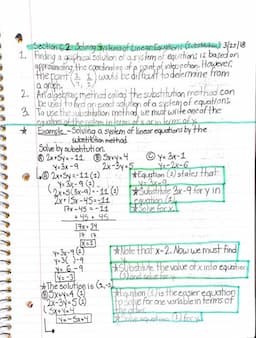 Section 6.2: Solving Systems of Linear Equations (Substitution) 3/22/18
1. Finding a graphical solution of a system of equations is based on
approximating the coordinates of a point of intersection. However,
the point would be difficult to determine from
a graph.
2. An algebraic method called the substitution method can
be used to find an exact solution of a system of equations.
3. To use the substitution method, we must write one of the
equations of the system in terms of x or in terms of y.
* Example - Solving a system of linear equations by the
substitution method.
Solve by substitution.
Ⓐ 2x+5y=-11 Ⓑ 5x+y=4 Ⓒ y=3x-1
y=3x-9 2x-3y=5 y=-2x-6
Ⓐ 2x+5y=-11 (1)
y=3x-9 (2)
2x+5(3x-9)=-11
2x+15x-45=-11
17x-45=-11
+45 +45
17x=34
17 17
x=2
*Equation (2) states that
y=3x-9
*Substitute 3x-9 for y in
equation (1)
*Solve for x.
y=3x-9 (2)
y=3(2)-9
y=6-9
y=-3
*Note that x=2. Now we must find
*Substitute the value of x into equation
*The solution is (2,-3)
Ⓑ 5x+y=4 (1)
2x-3y=5 (2)
5x+y=4
y=-5x+4
*Equation (1) is the easier equation
to solve for one variable in terms of
the other.
*Solve equation (1) for y.